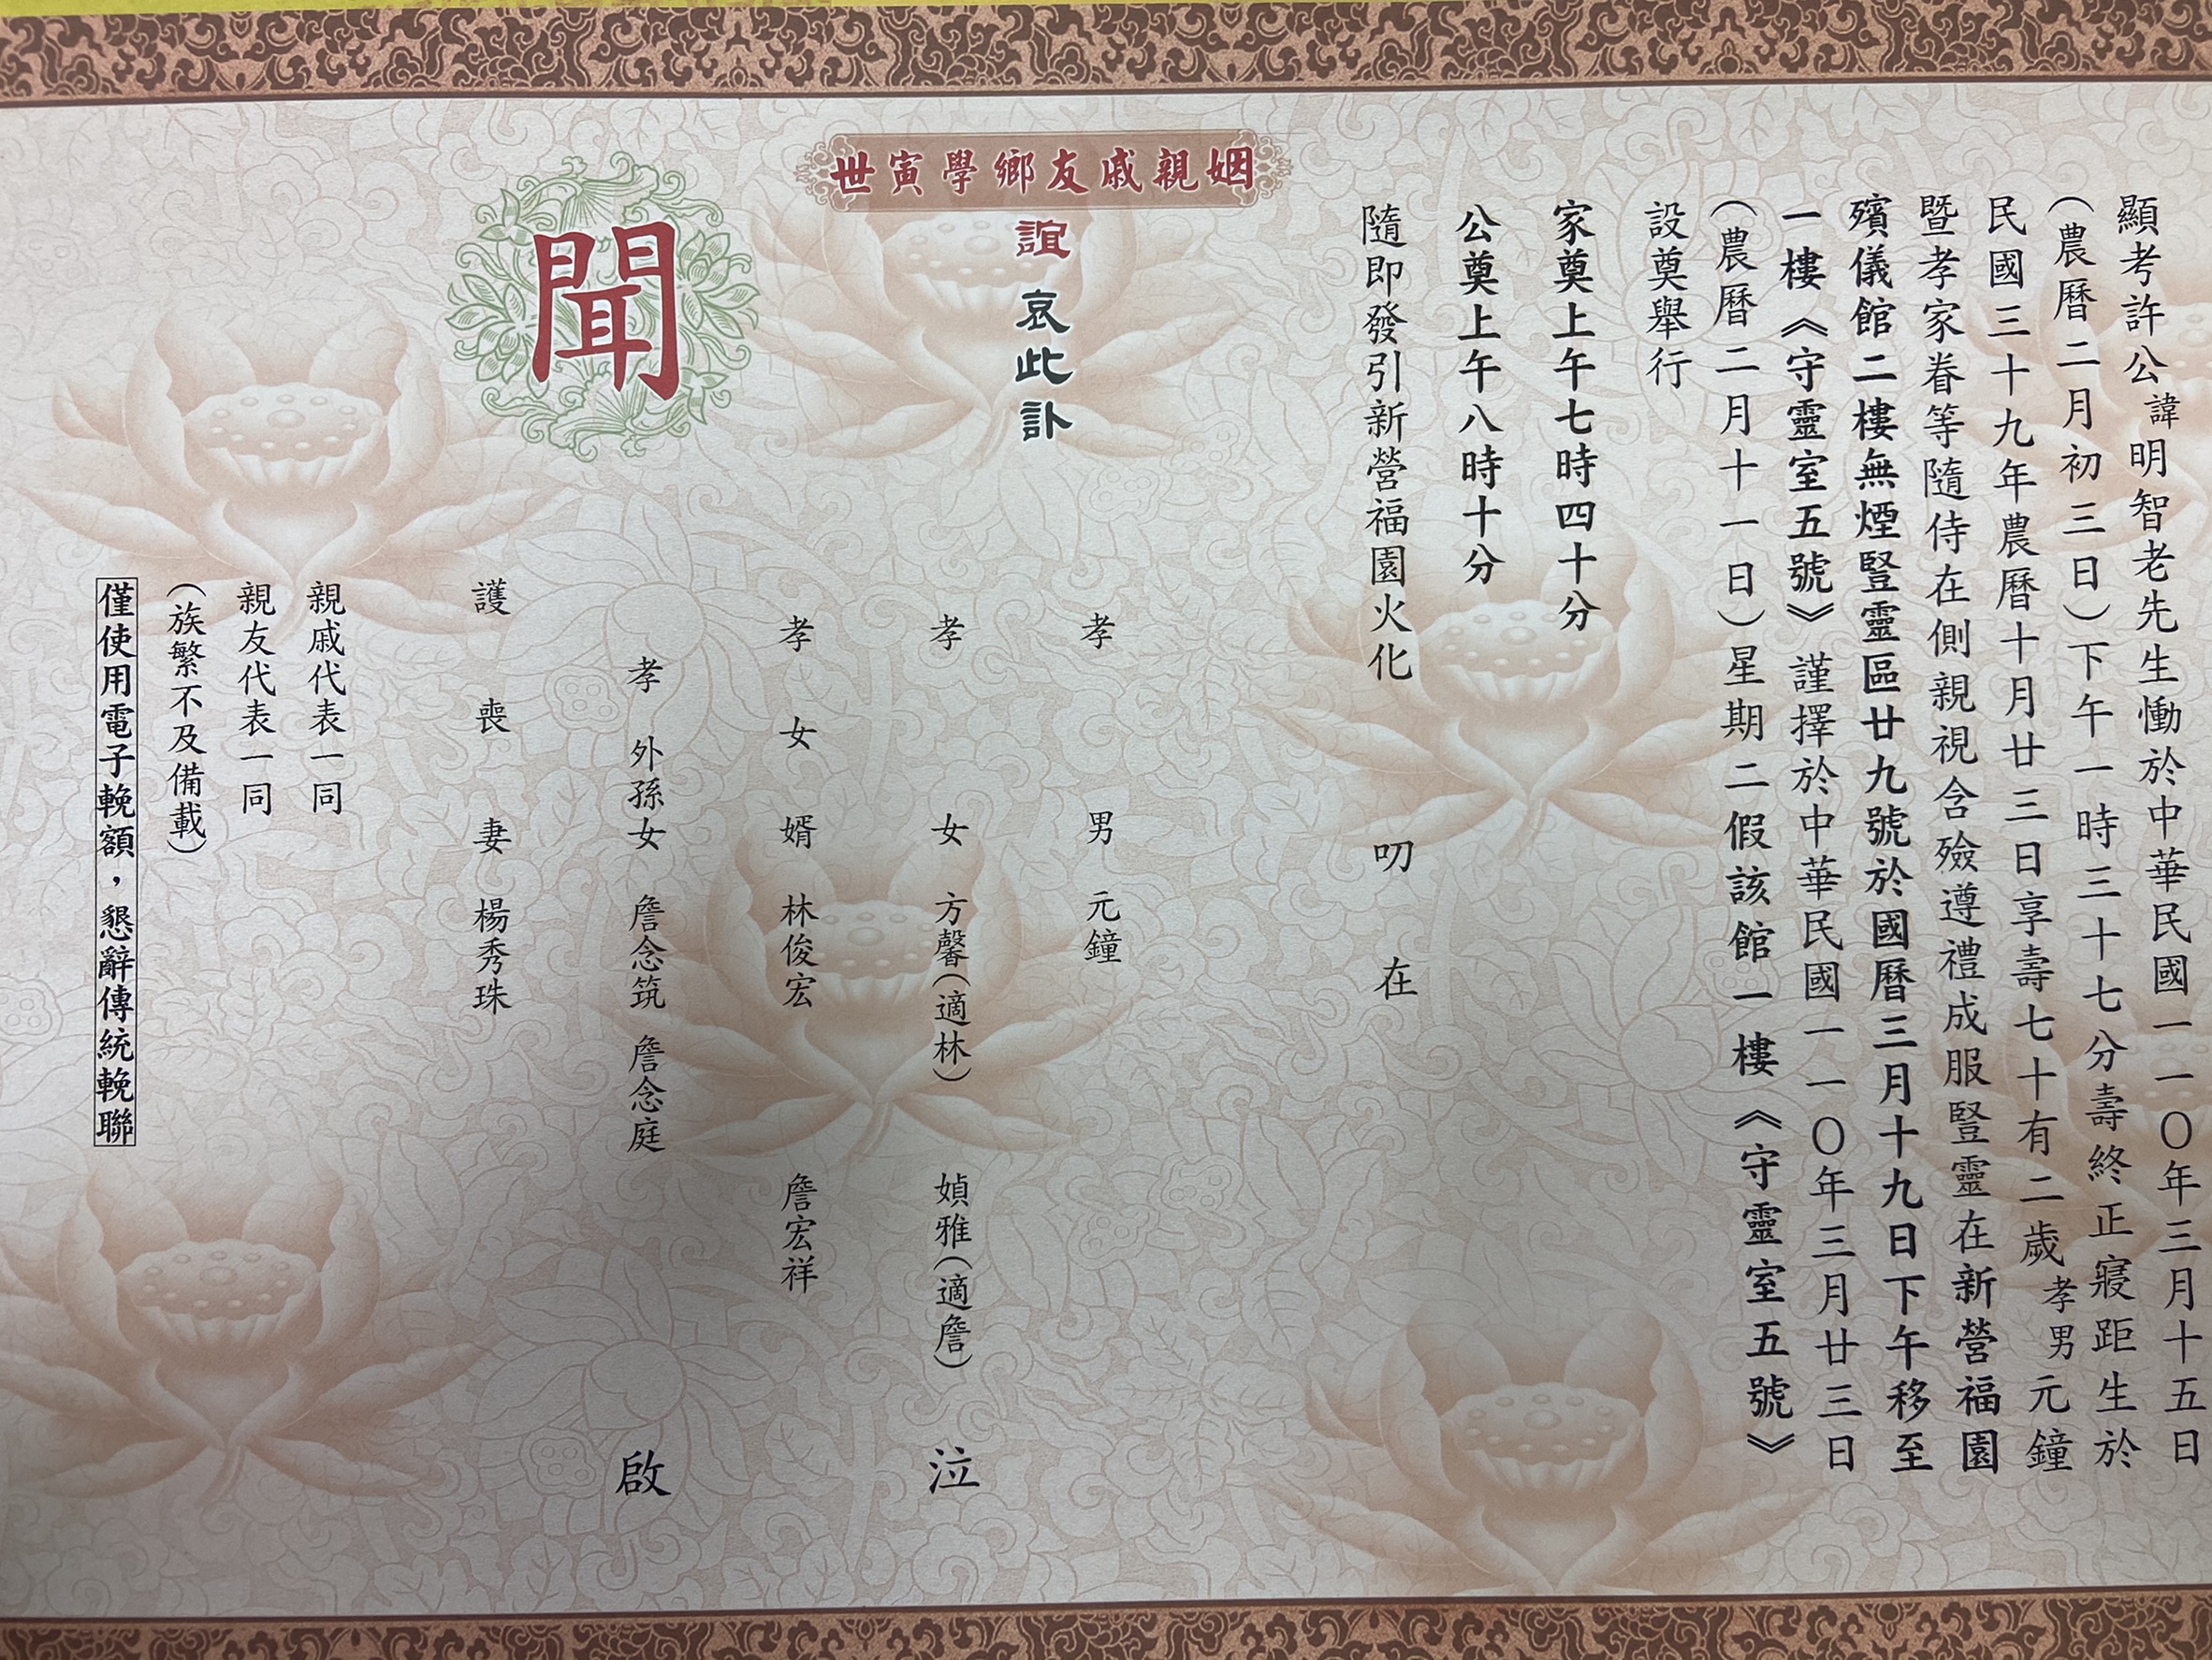 顯考許公諱明智老先生慟於中華民國一一〇年三月十五日
（農曆二月初三日）下午一時三十七分壽終正寢距生於
民國三十九年農曆十月廿三日享壽七十有二歲孝男元鐘
暨孝家眷等隨侍在側親視含殮遵禮成服豎靈在新營福園
殯儀館二樓無煙豎靈區廿九號於國曆三月十九日下午移至
一樓《守靈室五號》謹擇於中華民國一一〇年三月廿三日
（農曆二月十一日）星期二假該館一樓《守靈室五號》
設奠舉行
家奠上午七時四十分
公奠上午八時十分
隨即發引新營福園火化 叨在
姻親戚友鄉學寅世
誼 哀此訃
聞
孝男 元鐘
孝女 方馨（適林） 媜雅（適詹） 泣
孝女婿 林俊宏 詹宏祥
孝外孫女 詹念筑 詹念庭 啟
護喪妻 楊秀珠
親戚代表一同
親友代表一同
（族繁不及備載）
僅使用電子輓額，懇辭傳統輓聯